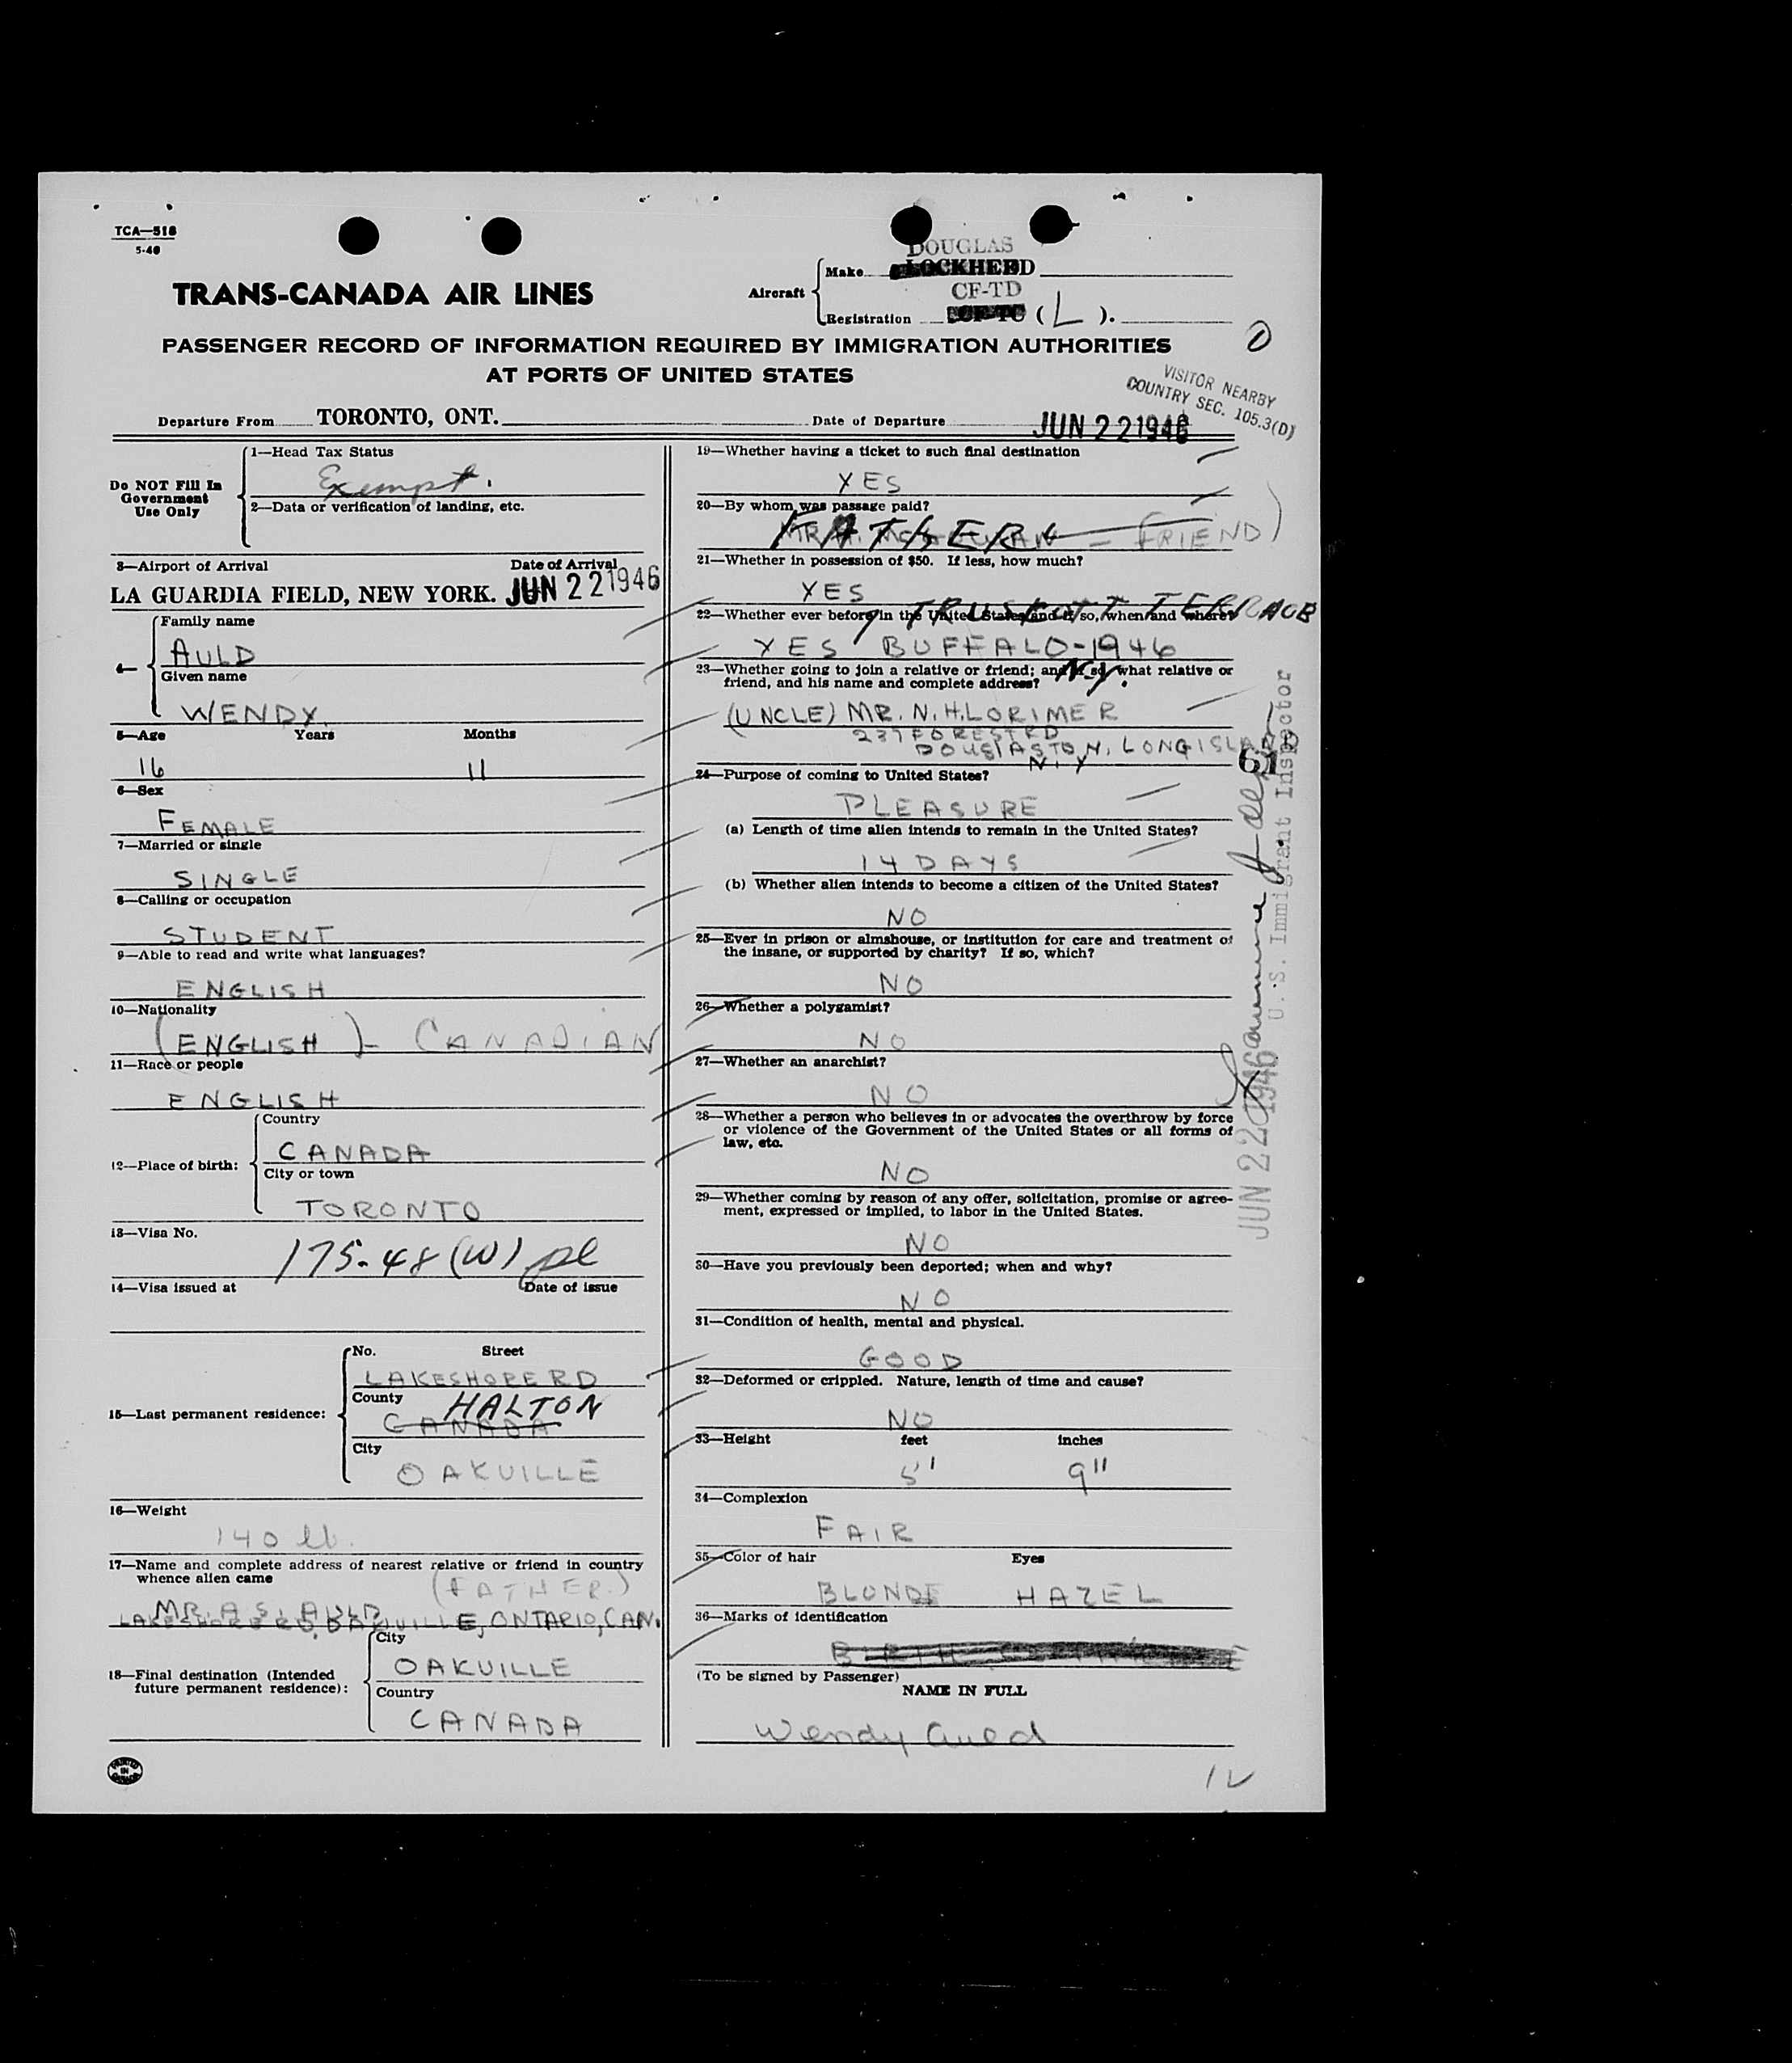 TCA—518
5-40
DOUGLAS
Make LOCKHEED
TRANS-CANADA AIR LINES
Aircraft
CF-TD
Registration CF-TC ( L ).
PASSENGER RECORD OF INFORMATION REQUIRED BY IMMIGRATION AUTHORITIES
AT PORTS OF UNITED STATES
VISITOR NEARBY
COUNTRY SEC. 105.3(D)
Departure From TORONTO, ONT. Date of Departure JUN 22 1946
Do NOT Fill In
Government
Use Only
1—Head Tax Status
Exempt.
2—Data or verification of landing, etc.
3—Airport of Arrival Date of Arrival
LA GUARDIA FIELD, NEW YORK. JUN 22 1946
4—
Family name
AULD
Given name
WENDY.
5—Age Years Months
16 11
6—Sex
FEMALE
7—Married or single
SINGLE
8—Calling or occupation
STUDENT
9—Able to read and write what languages?
ENGLISH
10—Nationality
(ENGLISH) - CANADIAN
11—Race or people
ENGLISH
12—Place of birth:
Country
CANADA
City or town
TORONTO
13—Visa No.
175.48 (W)
14—Visa issued at Date of issue
15—Last permanent residence:
No. Street
LAKESHORE RD
County HALTON
CANADA
City
OAKVILLE
16—Weight
140 lb.
17—Name and complete address of nearest relative or friend in country
whence alien came
(FATHER.)
MR. A. S. AULD
LAKESHORE RD, OAKVILLE, ONTARIO, CAN.
18—Final destination (Intended
future permanent residence):
City
OAKVILLE
Country
CANADA
PRINTED
IN
CANADA
19—Whether having a ticket to such final destination
YES
20—By whom was passage paid?
FATHER
= (FRIEND)
21—Whether in possession of $50. If less, how much?
YES
22—Whether ever before in the United States and if so, when and where?
YES BUFFALO-1946
23—Whether going to join a relative or friend; and if so, what relative or
friend, and his name and complete address?
N.Y.
(UNCLE) MR. N. H. LORIMER
FOREST RD
DOUGLASTON, LONG ISLAND
N. Y
61
24—Purpose of coming to United States?
PLEASURE
(a) Length of time alien intends to remain in the United States?
14 DAYS
(b) Whether alien intends to become a citizen of the United States?
NO
25—Ever in prison or almshouse, or institution for care and treatment of
the insane, or supported by charity? If so, which?
NO
26—Whether a polygamist?
NO
27—Whether an anarchist?
NO
28—Whether a person who believes in or advocates the overthrow by force
or violence of the Government of the United States or all forms of
law, etc.
NO
29—Whether coming by reason of any offer, solicitation, promise or agree-
ment, expressed or implied, to labor in the United States.
NO
30—Have you previously been deported; when and why?
NO
31—Condition of health, mental and physical.
GOOD
32—Deformed or crippled. Nature, length of time and cause?
NO
33—Height feet inches
5' 9"
34—Complexion
FAIR
35—Color of hair Eyes
BLONDE HAZEL
36—Marks of identification
(To be signed by Passenger)
NAME IN FULL
Wendy Auld
U. S. Immigrant Inspector
JUN 22 1946